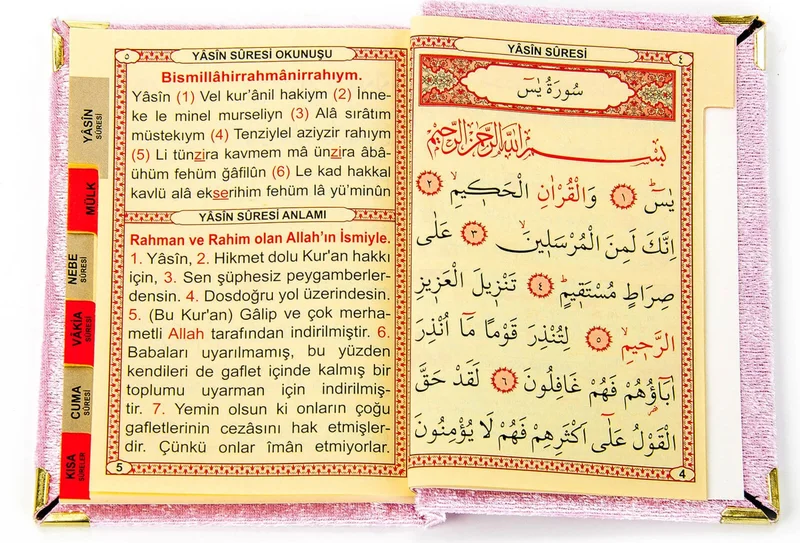 ٥
YÂSÎN SÛRESİ OKUNUŞU
Bismillâhirrahmânirrahıym.
Yâsîn (1) Vel kur'ânil hakiym (2) İnne-
ke le minel murseliyn (3) Alâ sırâtım
müstekıym (4) Tenziylel aziyzir rahıym
(5) Li tünzira kavmem mâ ünzira âbâ-
ühüm fehüm ğâfilûn (6) Le kad hakkal
kavlü alâ ekserihim fehüm lâ yü'minûn
YÂSÎN SÛRESİ ANLAMI
Rahman ve Rahim olan Allah'ın İsmiyle.
1. Yâsîn, 2. Hikmet dolu Kur'an hakkı
için, 3. Sen şüphesiz peygamberler-
densin. 4. Dosdoğru yol üzerindesin.
5. (Bu Kur'an) Gâlip ve çok merha-
metli Allah tarafından indirilmiştir. 6.
Babaları uyarılmamış, bu yüzden
kendileri de gaflet içinde kalmış bir
toplumu uyarman için indirilmiş-
tir. 7. Yemin olsun ki onların çoğu
gafletlerinin cezâsını hak etmişler-
dir. Çünkü onlar îmân etmiyorlar.
5
YÂSÎN
SÛRESİ
MÜLK
NEBE
SÛRESİ
VÂKIA
SÛRESİ
CUMA
SÛRESİ
KISA
SÛRELER
YÂSÎN SÛRESİ
٤
سُورَةُ يٰسٓ
بِسْمِ اللّٰهِ الرَّحْمٰنِ الرَّحِيمِ
يٰسٓ ﴿١﴾ وَالْقُرْاٰنِ الْحَكِيمِ ﴿٢﴾
اِنَّكَ لَمِنَ الْمُرْسَلِينَ ﴿٣﴾ عَلٰى
صِرَاطٍ مُسْتَقِيمٍ ﴿٤﴾ تَنْزِيلَ الْعَزِيزِ
الرَّحِيمِ ﴿٥﴾ لِتُنْذِرَ قَوْمًا مَٓا اُنْذِرَ
اٰبَٓاؤُهُمْ فَهُمْ غَافِلُونَ ﴿٦﴾ لَقَدْ حَقَّ
الْقَوْلُ عَلٰٓى اَكْثَرِهِمْ فَهُمْ لَا يُؤْمِنُونَ
4